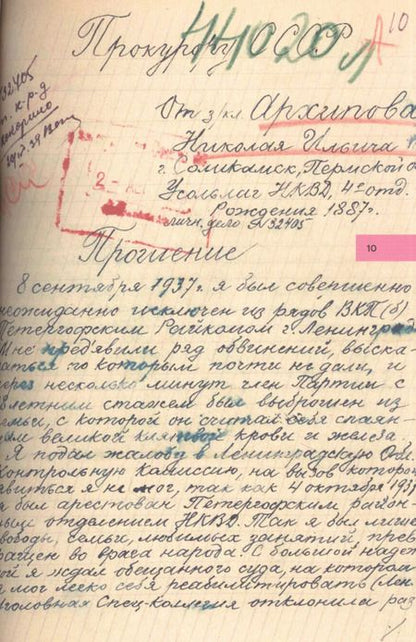 Прокурору СССР
10
От з/кл. Архипова
Николая Ильича
г. Соликамск, Пермской о
Усольлаг НКВД, 4-отд.
Рождения 1887г.
личн. дело № 32405
32405
10
Прошение
8 сентября 1937г. я был совершенно
неожиданно исключен из рядов ВКП(б)
Петергофским Райкомом г. Ленинград
Мне пред'явили ряд обвинений, выска
аться по которым почти не дали, и
через несколько минут член Партии с
летним стажем был выброшен из
емьи, с которой он считал себя спаян-
ым великой клятвой крови и железа.
Я подал жалобу в Ленинградскую Обл.
Контрольную Камиссию, на вызов которой
явиться я не мог, так как 4 октября 193
я был арестован Петергофским район-
ным отделением НКВД. Так я был лишен
вободы, семьи, любимых занятий, прев
ращен во врага народа. С большой надеж
ой я ждал обещанного суда, на котором
я мог легко себя реабилитировать (Лен
головная Спец-Коллегия отклонила раз